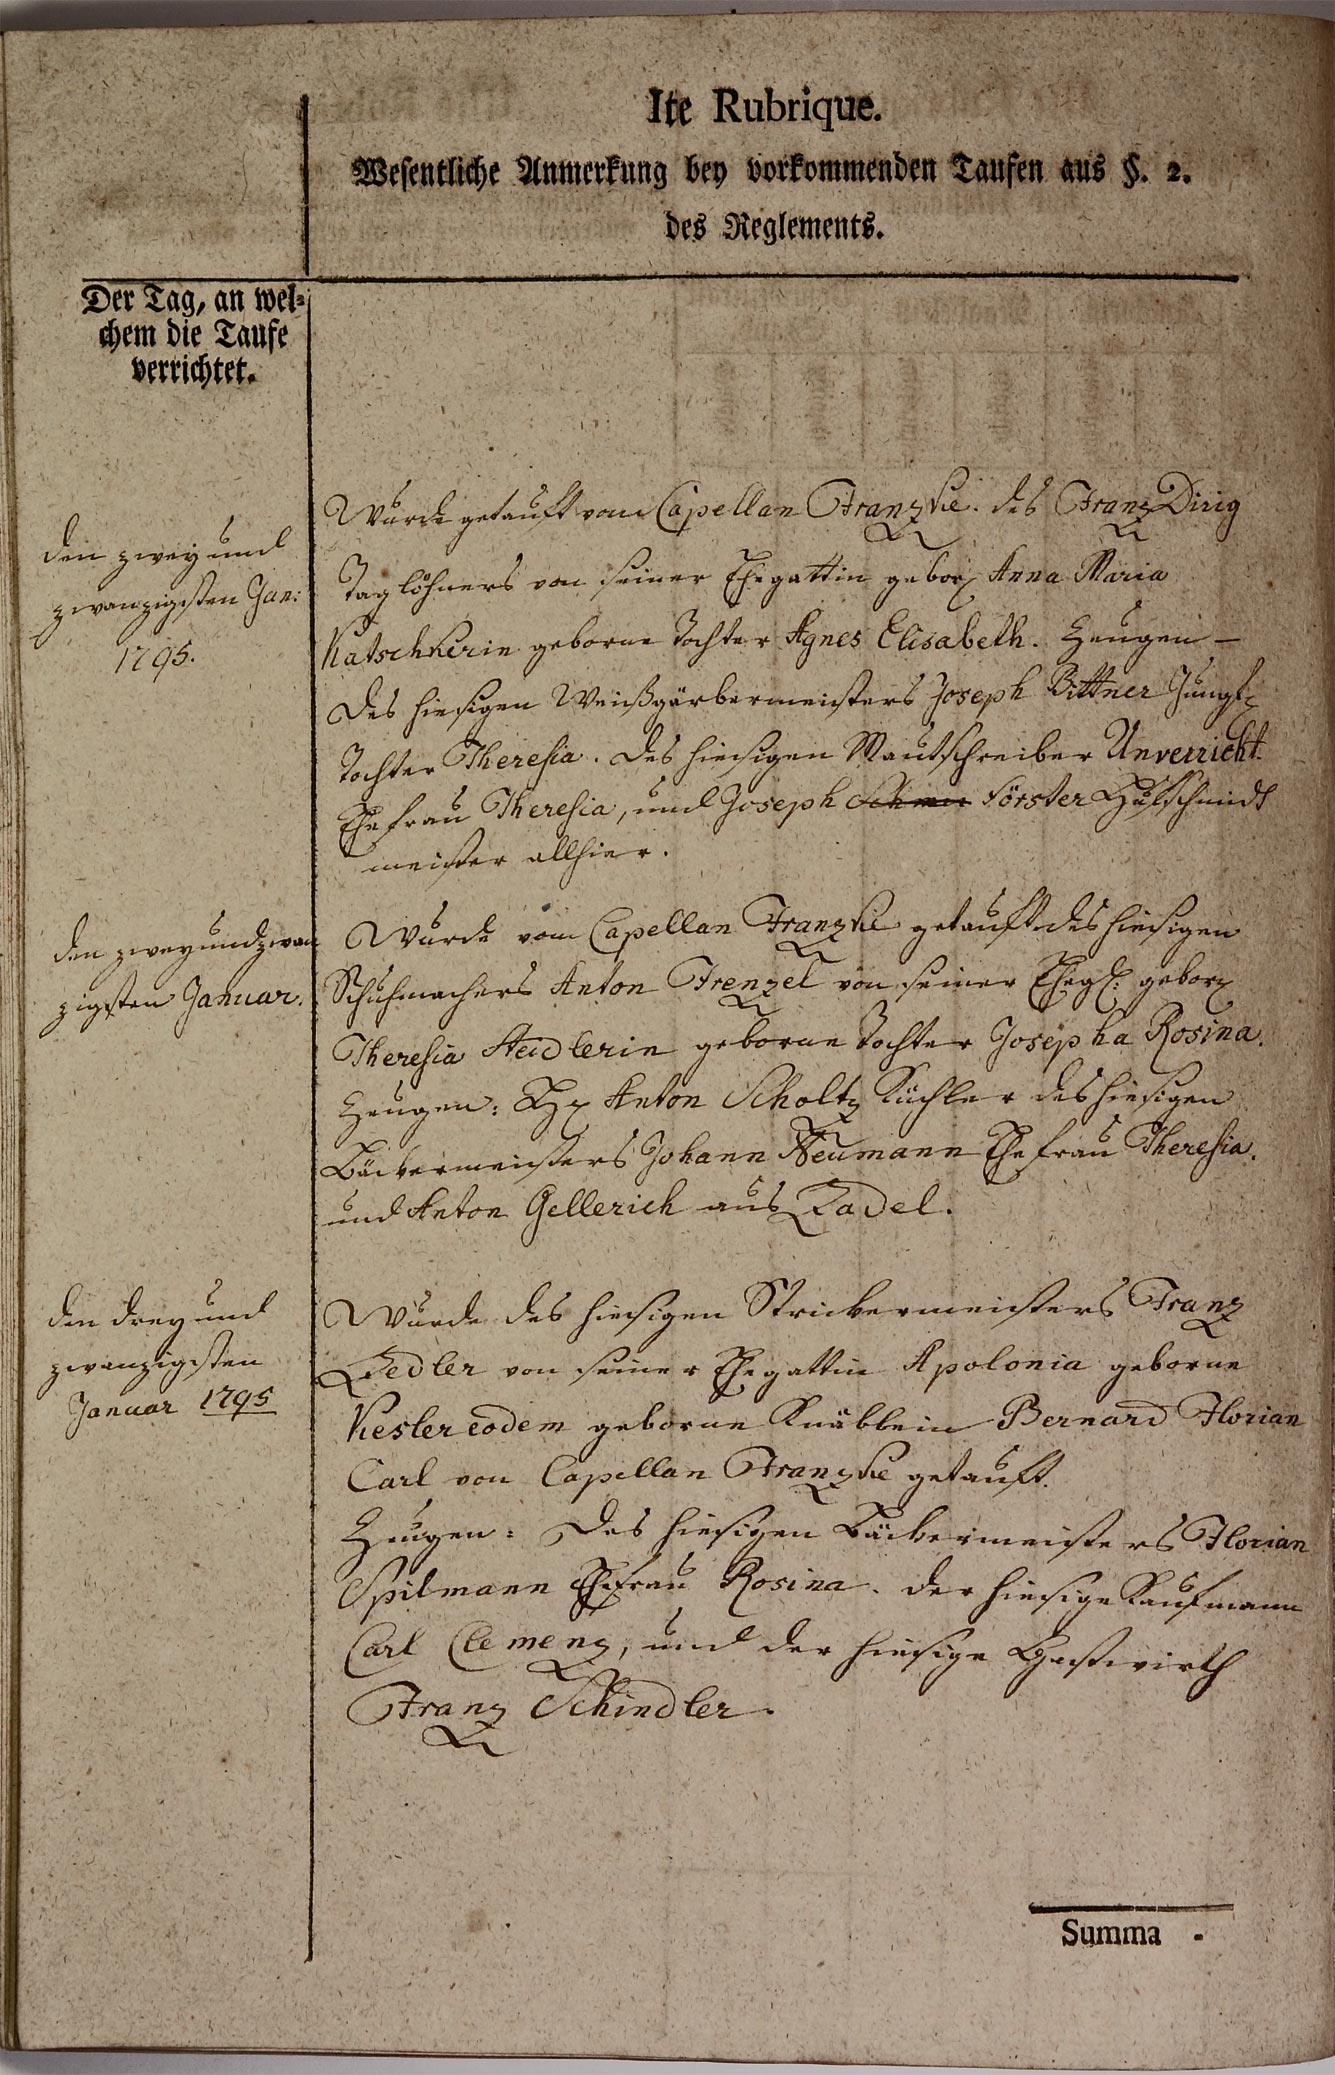 Ite Rubrique.
Wesentliche Anmerkung bey vorkommenden Taufen aus §. 2.
des Reglements.
Der Tag, an wel-
chem die Taufe
verrichtet.
den zwey und
zwanzigsten Jan:
1795.
Wurde getauft vom Capellan Franzkie. des Franz Dirig
Taglöhners von seiner Ehegattin gebor. Anna Maria
Katschkerin geborne Tochter Agnes Elisabeth. Zeugen –
Des hiesigen Weißgärbermeisters Joseph Bittner Jungf.
Tochter Theresia. Des hiesigen Mautschreiber Unverricht.
Ehefrau Theresia, und Joseph Förster Hufschmidt
meister allhier.
den zwey und zwan
zigsten Januar.
Wurde vom Capellan Franzkie getauft des hiesigen
Schuhmachers Anton Frenzel von seiner Eheg: gebor.
Theresia Heidlerin geborne Tochter Josepha Rosina.
Zeugen: H. Anton Scholtz Küchler des hiesigen
Bäckermeisters Johann Neumann Ehefrau Theresia.
und Anton Gellerich aus Zadel.
den drey und
zwanzigsten
Januar 1795
Wurde des hiesigen Strickermeisters Franz
Zedler von seiner Ehegattin Apolonia geborne
Kesler eodem geborne Knäblein Bernard Florian
Carl von Capellan Franzkie getauft.
Zeugen: Des hiesigen Bäckermeisters Florian
Spilmann Ehefrau Rosina. der hiesige Kaufmann
Carl Clemenz, und der hiesige Gastwirth
Franz Schindler.
Summa -